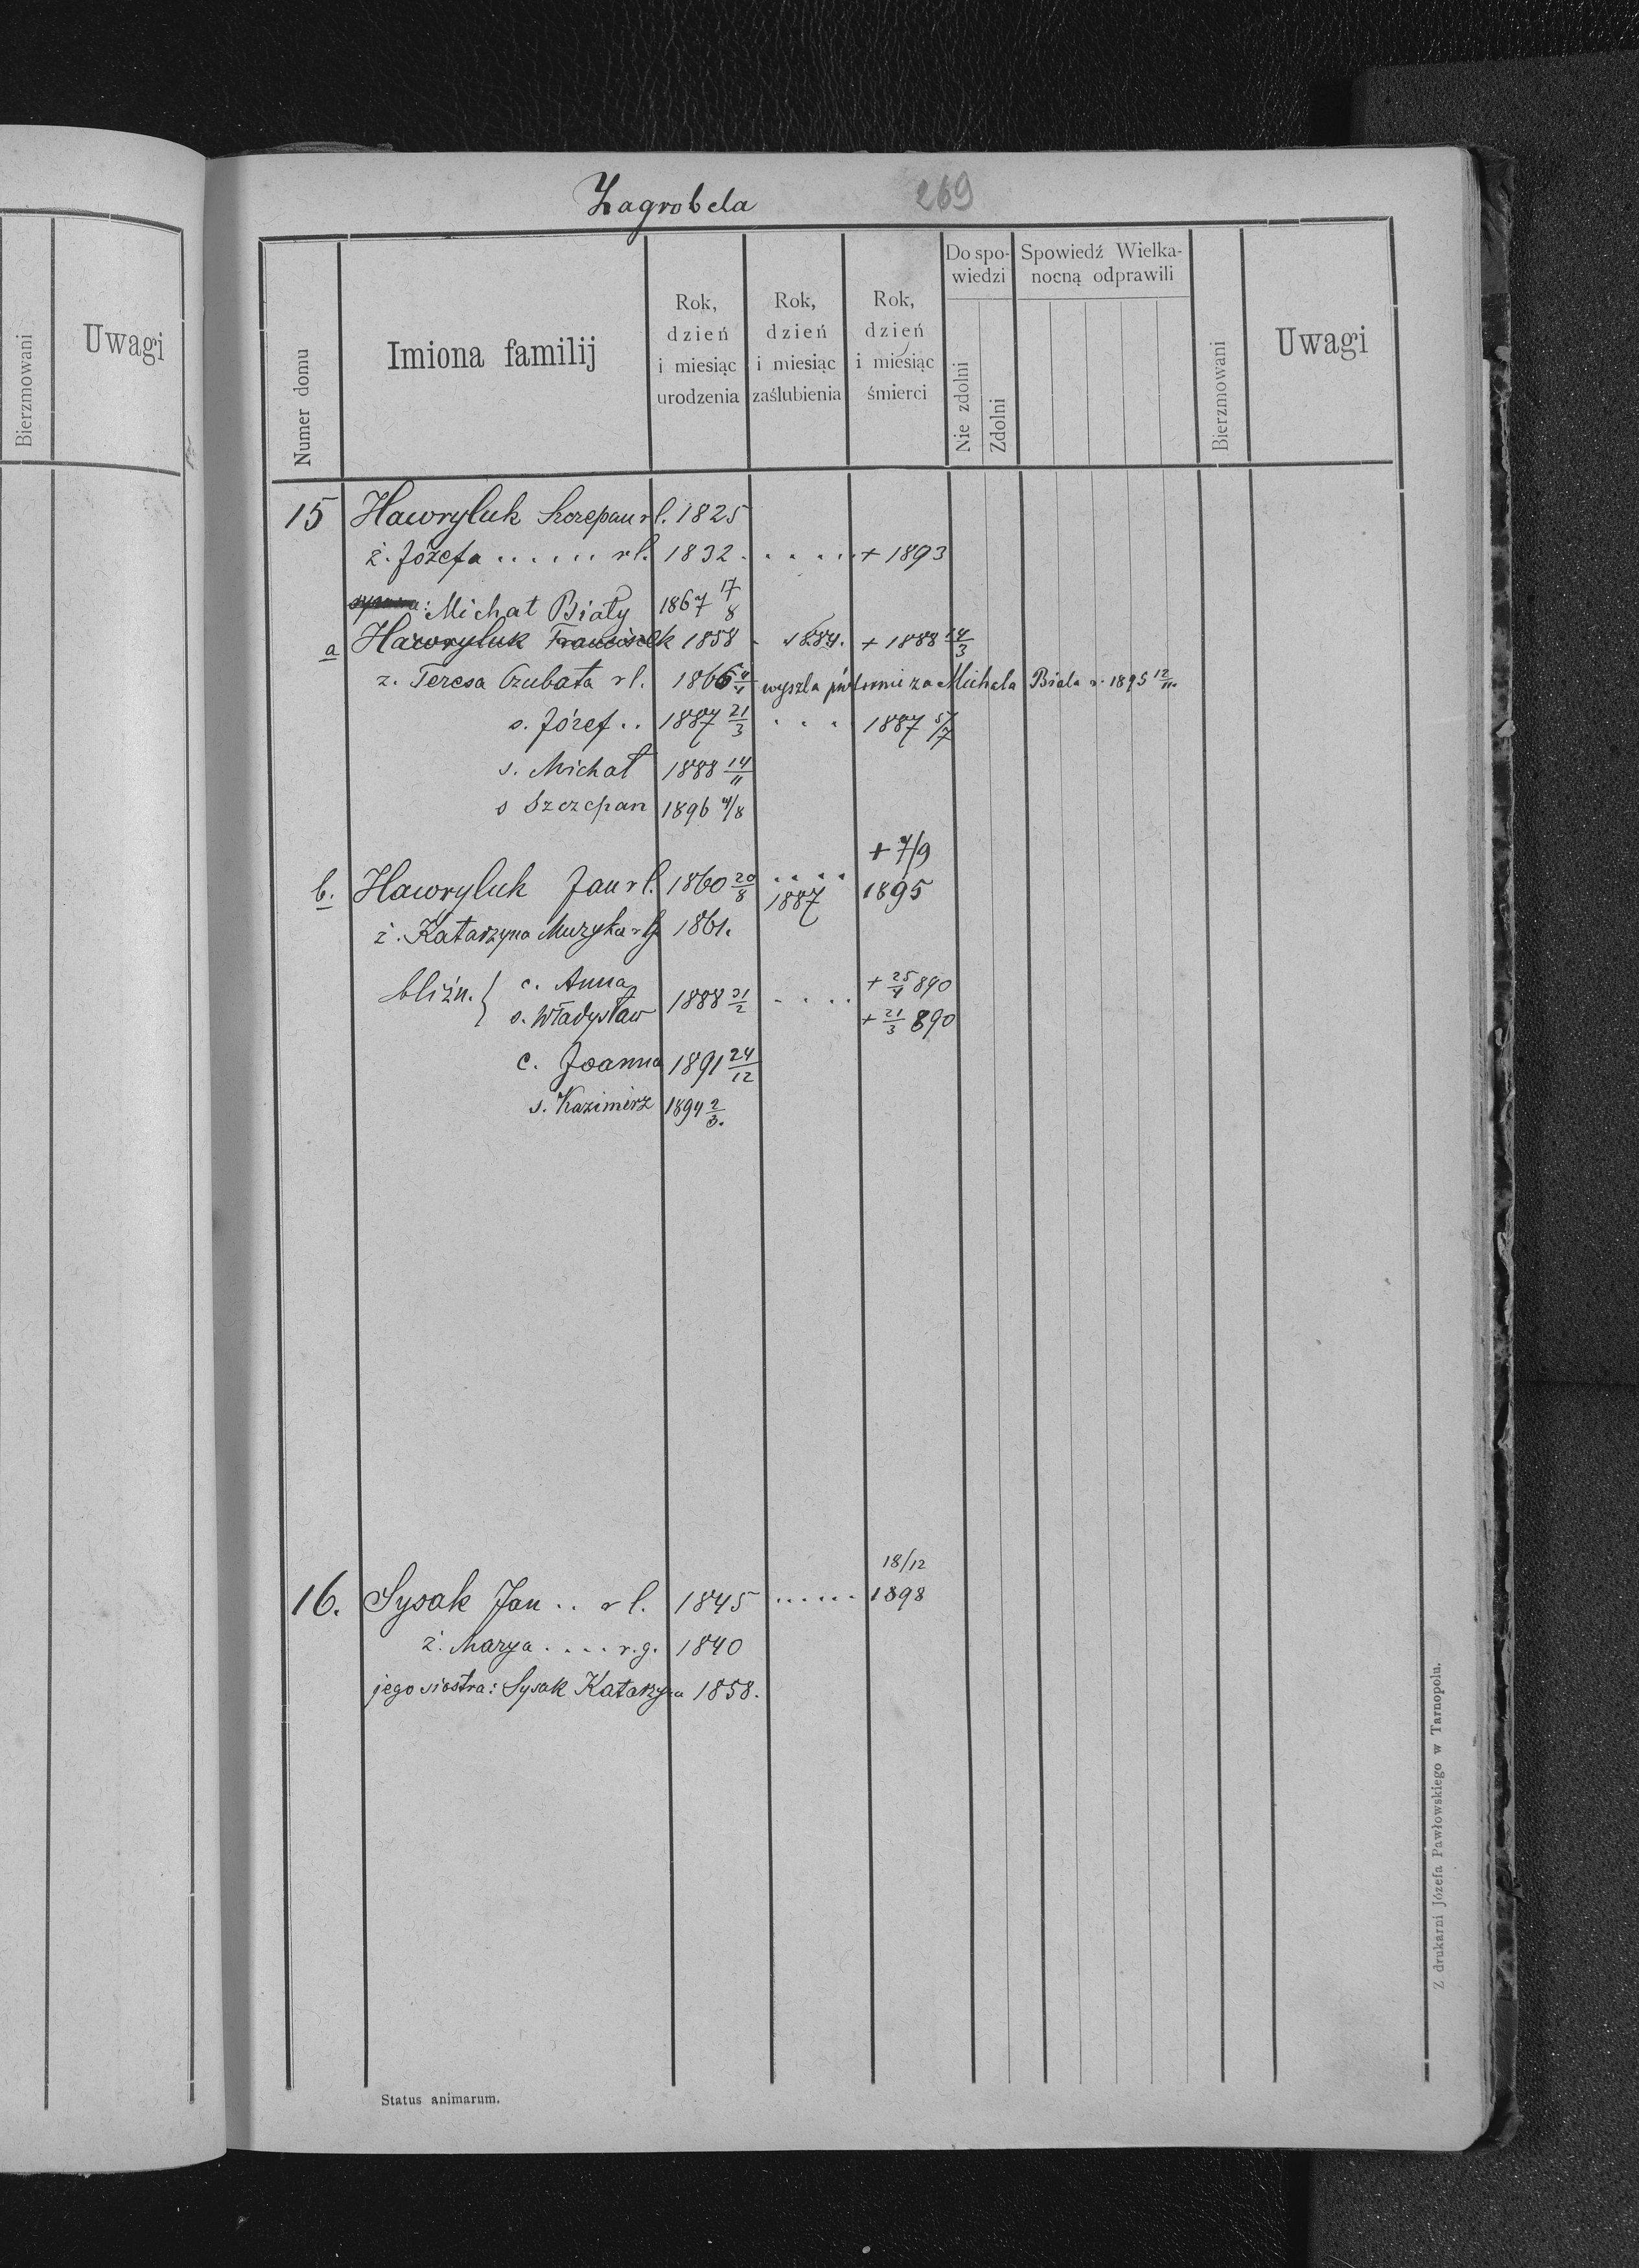 Zagrobela 269
Bierzmowani
Uwagi
Numer domu
Imiona familij
Rok, dzień i miesiąc urodzenia
Rok, dzień i miesiąc zaślubienia
Rok, dzień i miesiąc śmierci
Do spowiedzi
Nie zdolni
Zdolni
Spowiedź Wielkanocną odprawili
Bierzmowani
Uwagi
15 Hawryluk Szczepan rl. 1825
ż. Józefa ...... rl. 1832 ...... + 1893
Michał Biały 1867 17/8
a Hawryluk Franciszek 1858 - 1884. + 1888 14/3
ż. Teresa Czubata rl. 1866 wyszła za Michała Biała r. 1895 12/11.
s. Józef .. 1887 21/3 .... 1887 5/7
s. Michał 1888 14/11
s Szczepan 1896 4/8
+ 7/9
b. Hawryluk Jan rl. 1860 20/8 .... 1887 1895
ż. Katarzyna Muzyka 1861.
bliźn. { c. Anna + 25/4 890
s. Władysław 1888 21/2 .... + 21/3 890
c. Joanna 1891 24/12
s. Kazimirz 1894 2/3.
18/12
16. Sysak Jan .. rl. 1845 ...... 1898
ż. Marya .... r.g. 1840
jego siostra: Sysak Katarzyna 1858.
Status animarum.
Z drukarni Józefa Pawłowskiego w Tarnopolu.